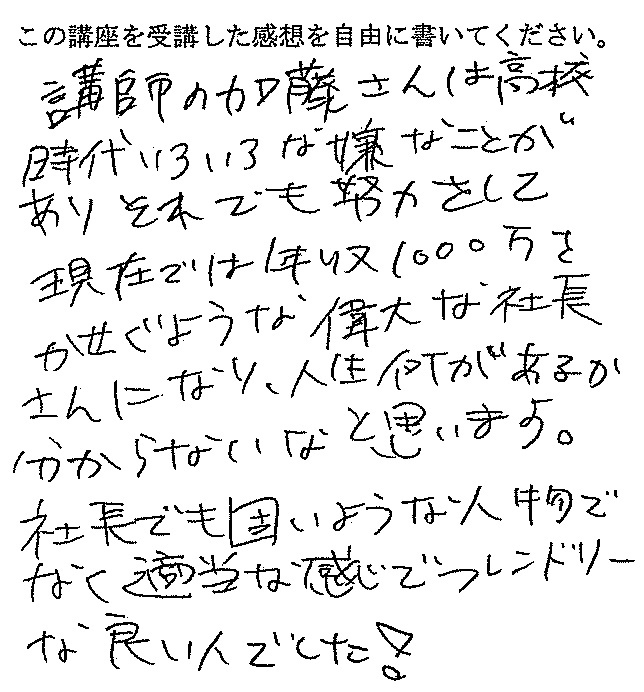 この講座を受講した感想を自由に書いてください。
講師の加藤さんは高校
時代いろいろな嫌なことが
ありそれでも努力をして
現在では年収1000万を
かせぐような偉大な社長
さんになり、人生何があるか
分からないなと思います。
社長でも固いような人物で
なく適当な感じでフレンドリー
な良い人でした!